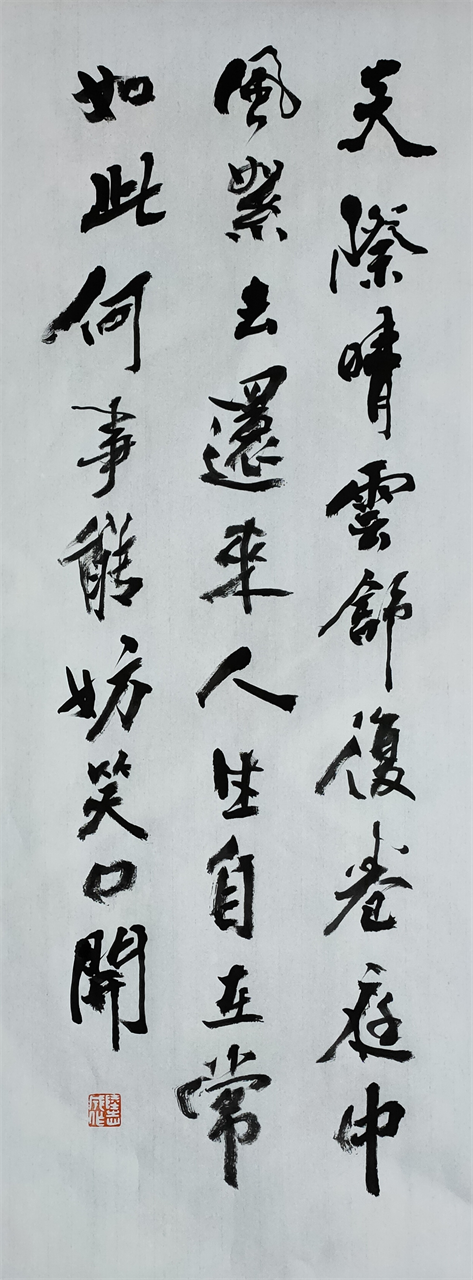 天際晴雲舒復卷庭中
風絮去還來人生自在常
如此何事能妨笑口開